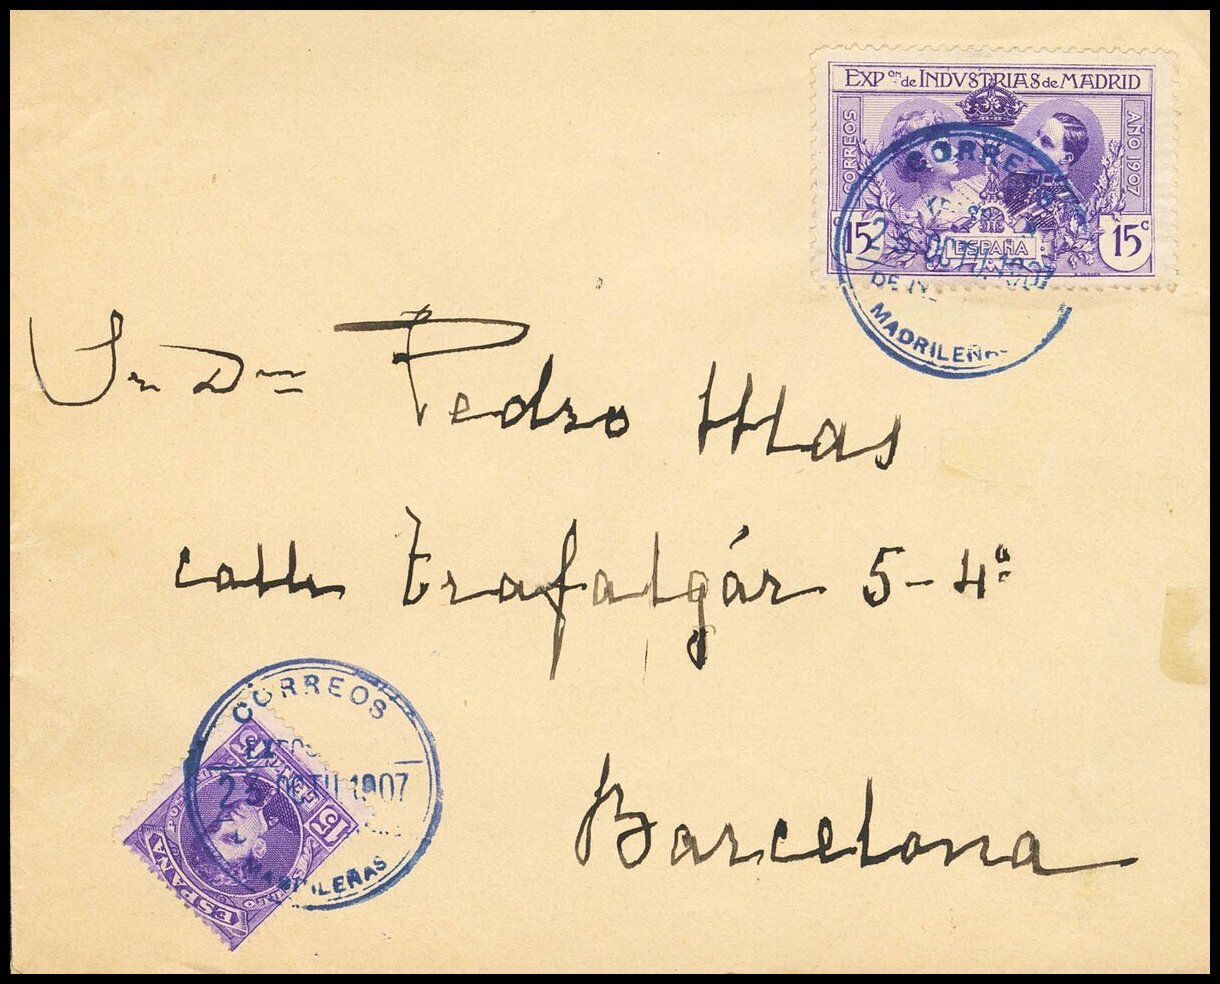 EXPon. de INDVSTRIAS de MADRID
CORREOS
AÑO 1907
15
ESPAÑA
15c
CORREOS
23 OCTU. 190
MADRILEÑA
Sr Dn Pedro Mas
calle Trafalgár 5-4º
Barcelona
CORREOS
23 OCTU 1907
MADRILEÑAS
15
15
ESPAÑA